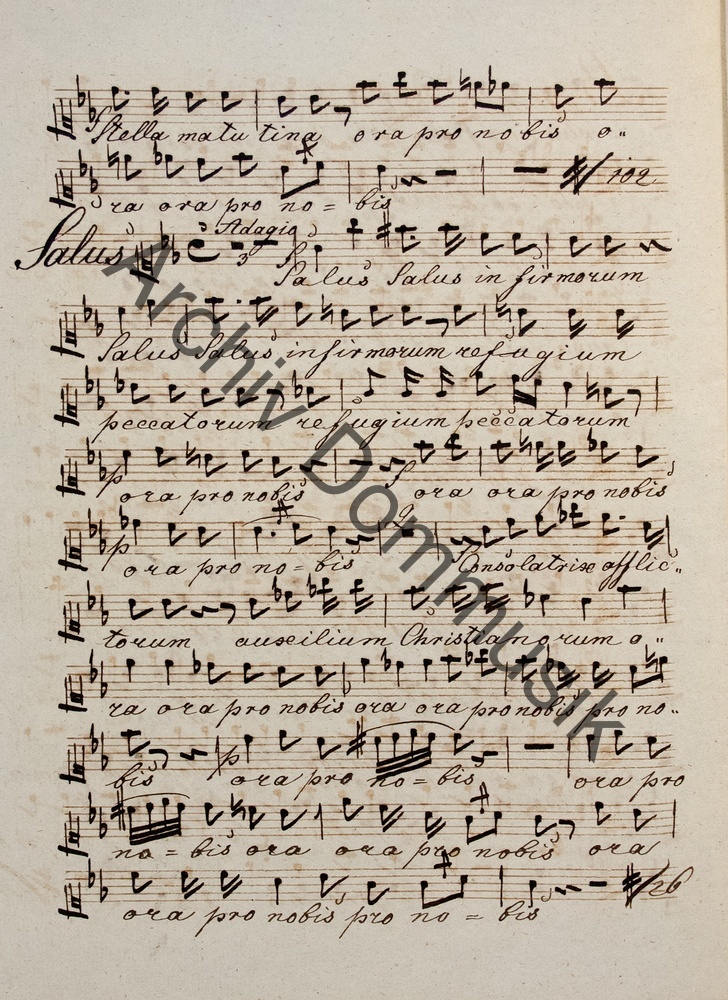 Stella matutina ora pro nobis o„
ra ora pro no = bis 102
Salus Adagio 3
Salus Salus infirmorum
Salus Salus infirmorum refugium
peccatorum refugium peccatorum
p ora pro nobis f ora ora pro nobis
p ora pro no = bis 2 Consolatrix afflic„
torum auxilium Christianorum o„
ra ora pro nobis ora ora pro nobis pro no„
bis p ora pro no = bis ora pro
no = bis ora ora pro nobis ora
ora pro nobis pro no = bis 26
Archiv Dommusik